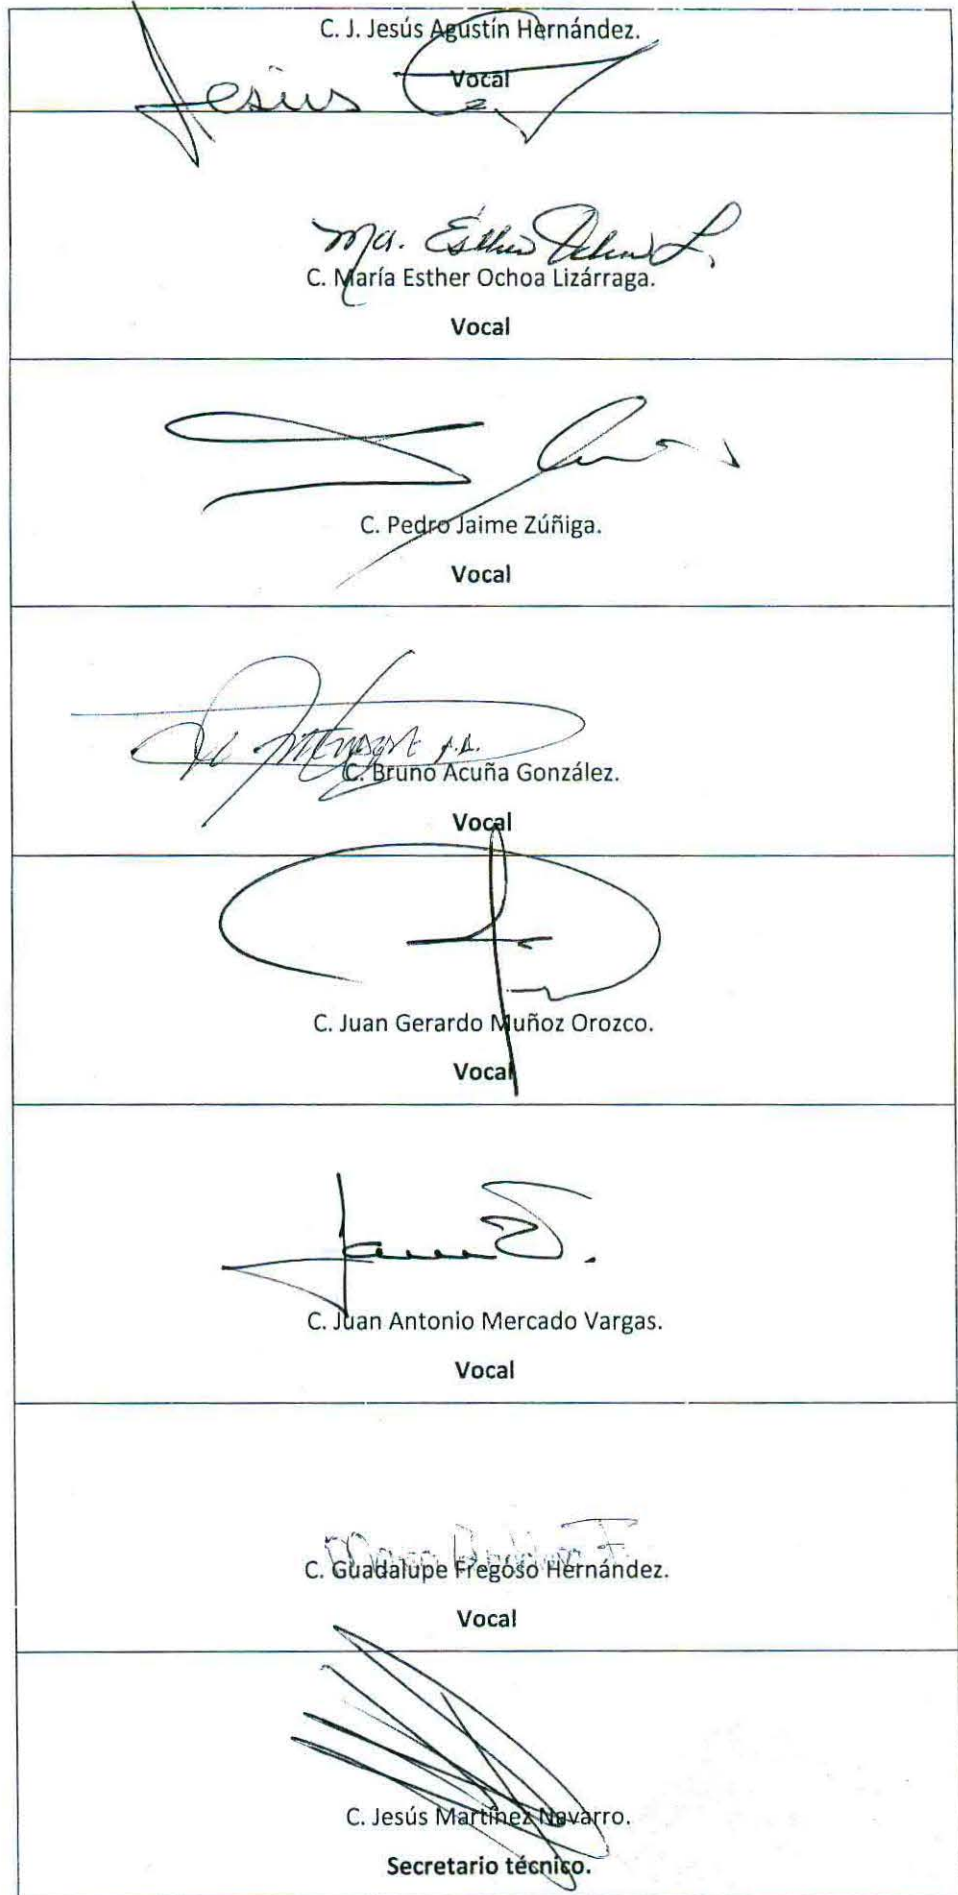 C. J. Jesús Agustín Hernández.
Vocal
Jesús
Ma. Esther Ochoa L.
C. María Esther Ochoa Lizárraga.
Vocal
C. Pedro Jaime Zúñiga.
Vocal
C. Bruno Acuña González.
Vocal
C. Juan Gerardo Muñoz Orozco.
Vocal
C. Juan Antonio Mercado Vargas.
Vocal
C. Guadalupe Fregoso Hernández.
Vocal
C. Jesús Martínez Navarro.
Secretario técnico.